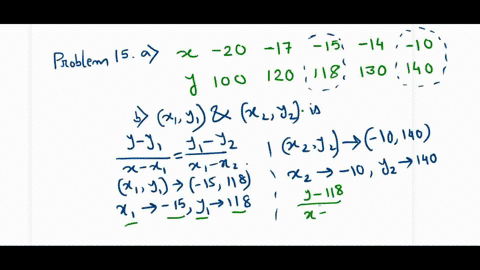 Problem 15. a) x -20 -17 -15 -14 -10
y 100 120 118 130 140
b) (x₁, y₁) & (x₂, y₂). is
y-y₁ / x-x₁ = y₁-y₂ / x₁-x₂.
(x₁, y₁) → (-15, 118)
x₁ → -15, y₁ → 118
(x₂, y₂) → (-10, 140)
x₂ → -10, y₂ → 140
y-118 / x-